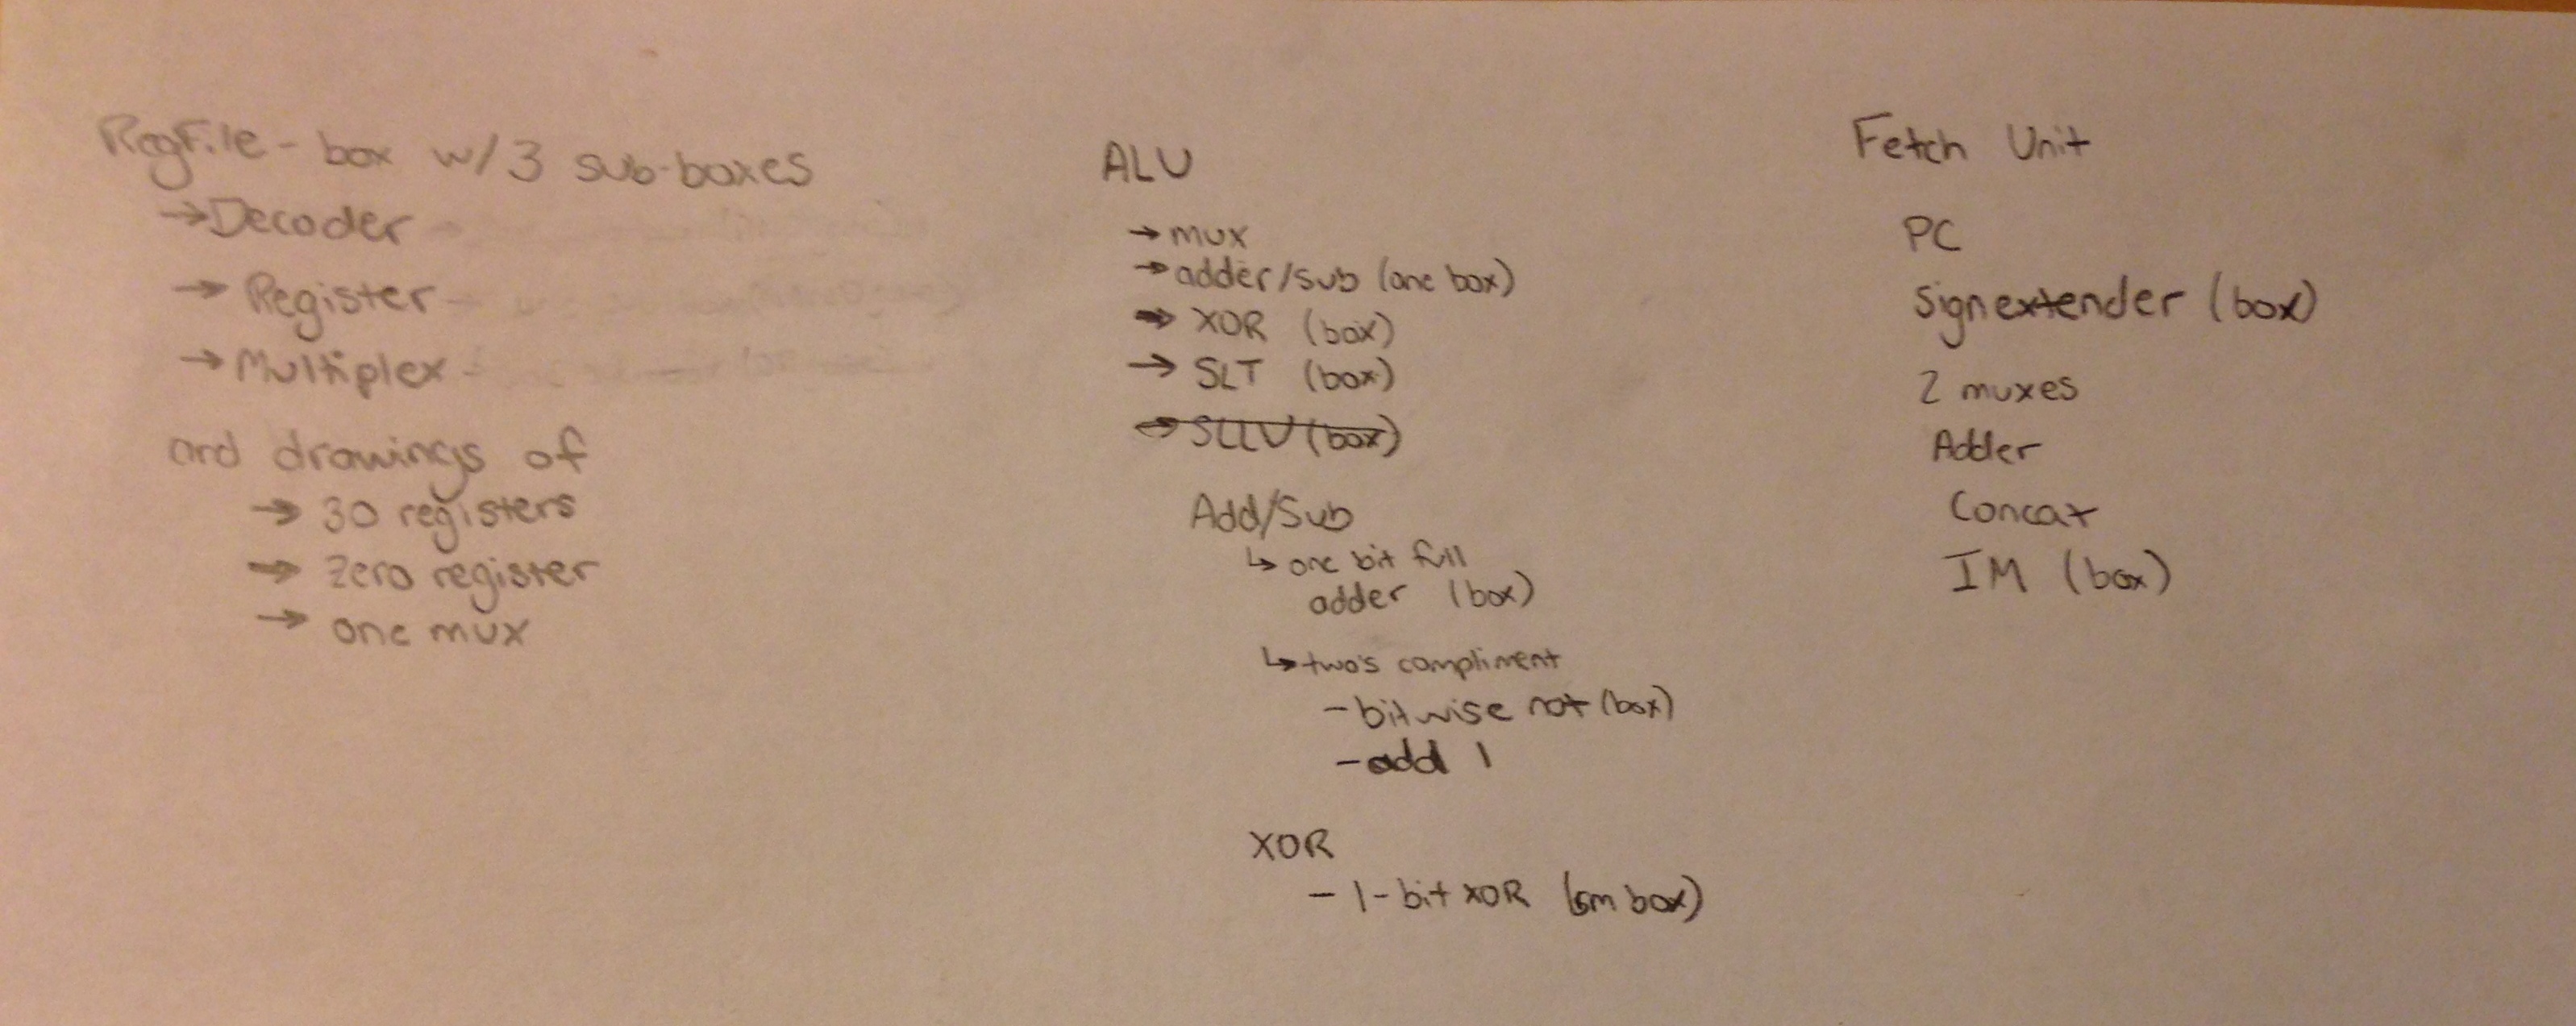 RegFile - box w/ 3 sub-boxes
→ Decoder -
→ Register -
→ Multiplex -
and drawings of
→ 30 registers
→ Zero register
→ one mux
ALU
→ mux
→ adder/sub (one box)
→ XOR (box)
→ SLT (box)
→ SLLV (box)
Add/Sub
↳ one bit full
adder (box)
↳ two's compliment
- bitwise not (box)
- add 1
XOR
- 1-bit XOR (sm box)
Fetch Unit
PC
Sign extender (box)
2 muxes
Adder
Concat
IM (box)